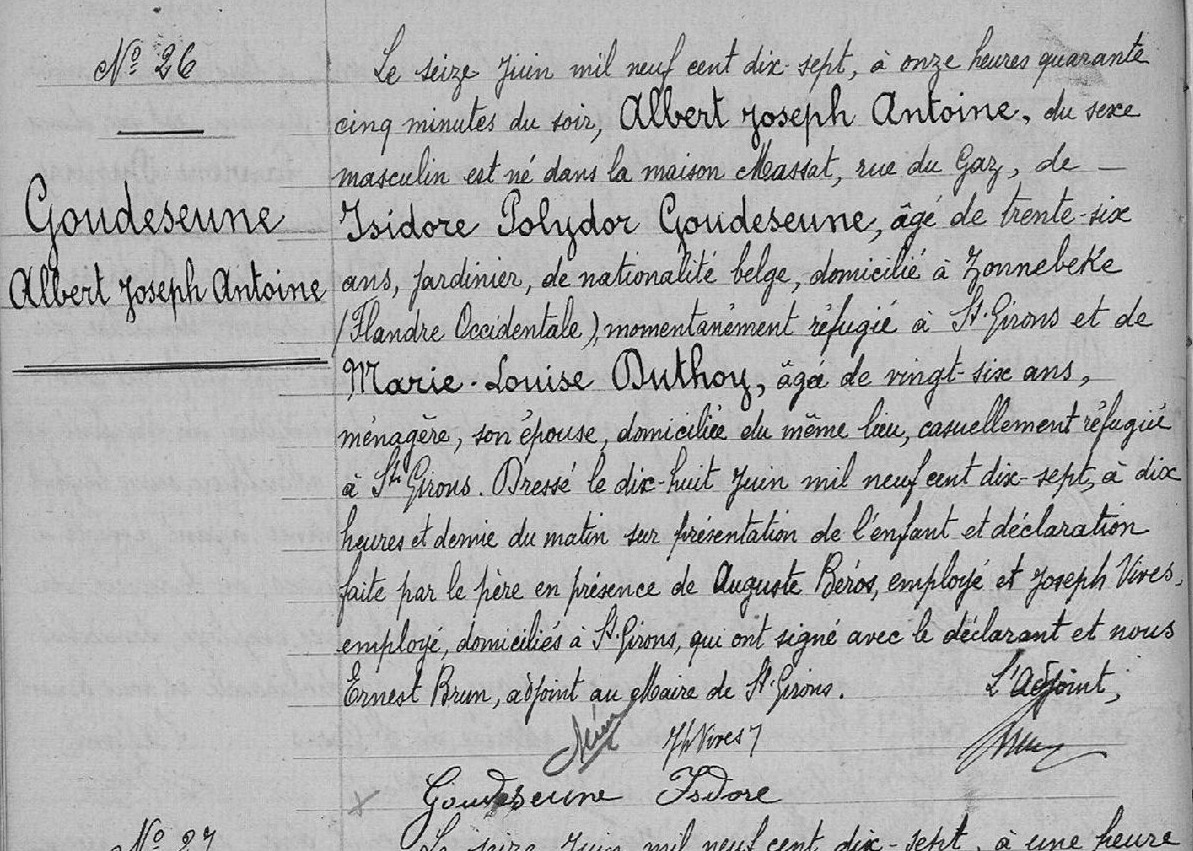 Nº 26
Goudeseune
Albert Joseph Antoine
Le seize Juin mil neuf cent dix-sept, à onze heures quarante
cinq minutes du soir, Albert Joseph Antoine, du sexe
masculin est né dans la maison Massat, rue du Gaz, de —
Isidore Polydor Goudeseune, âgé de trente-six
ans, jardinier, de nationalité belge, domicilié à Zonnebeke
(Flandre Occidentale), momentanément réfugié à St. Girons et de
Marie-Louise Duthoy, âgée de vingt-six ans,
ménagère, son épouse, domiciliée du même lieu, casuellement réfugiée
à St. Girons. Dressé le dix-huit Juin mil neuf cent dix-sept, à dix
heures et demie du matin sur présentation de l'enfant et déclaration
faite par le père en présence de Auguste Béros, employé et Joseph Vives,
employé, domiciliés à St. Girons, qui ont signé avec le déclarant et nous
Ernest Brun, adjoint au Maire de St. Girons. L'adjoint,
Jh Vives
Goudeseune Isdore
Nº 27
Le seize Juin mil neuf cent dix-sept, à une heure